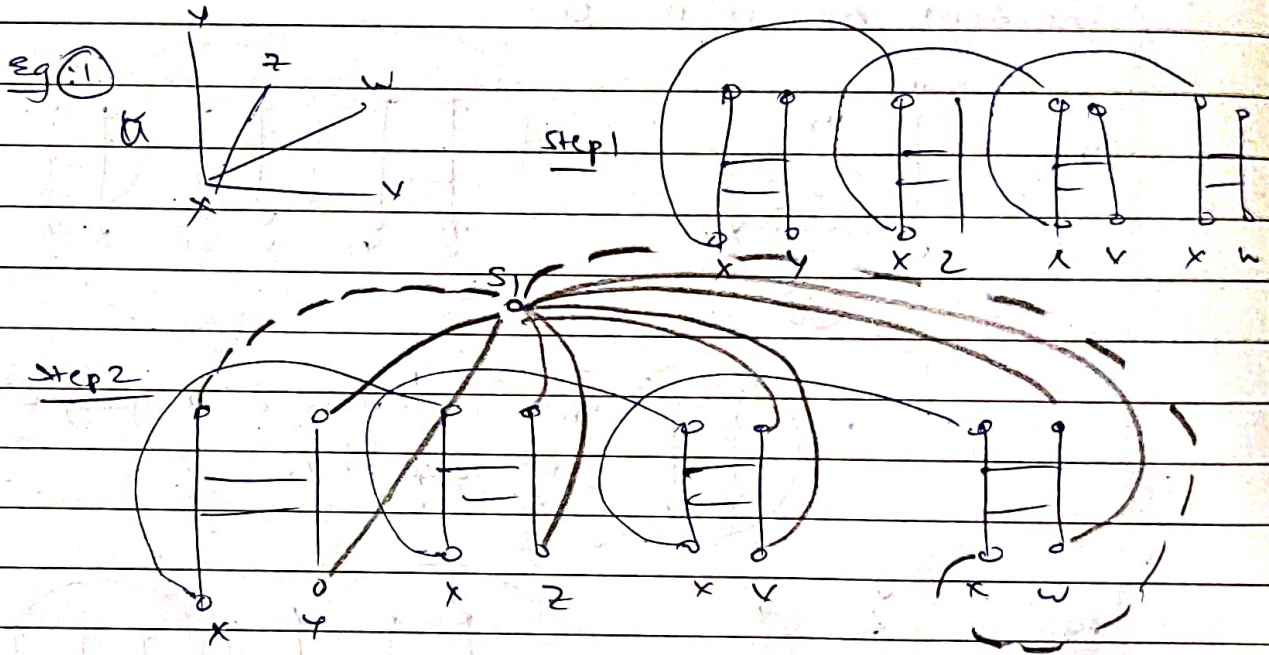 Eg :1
Y
Z
W
G
X
V
Step 1
X Y X Z X V X W
S1
Step 2
X Y X Z X V X W